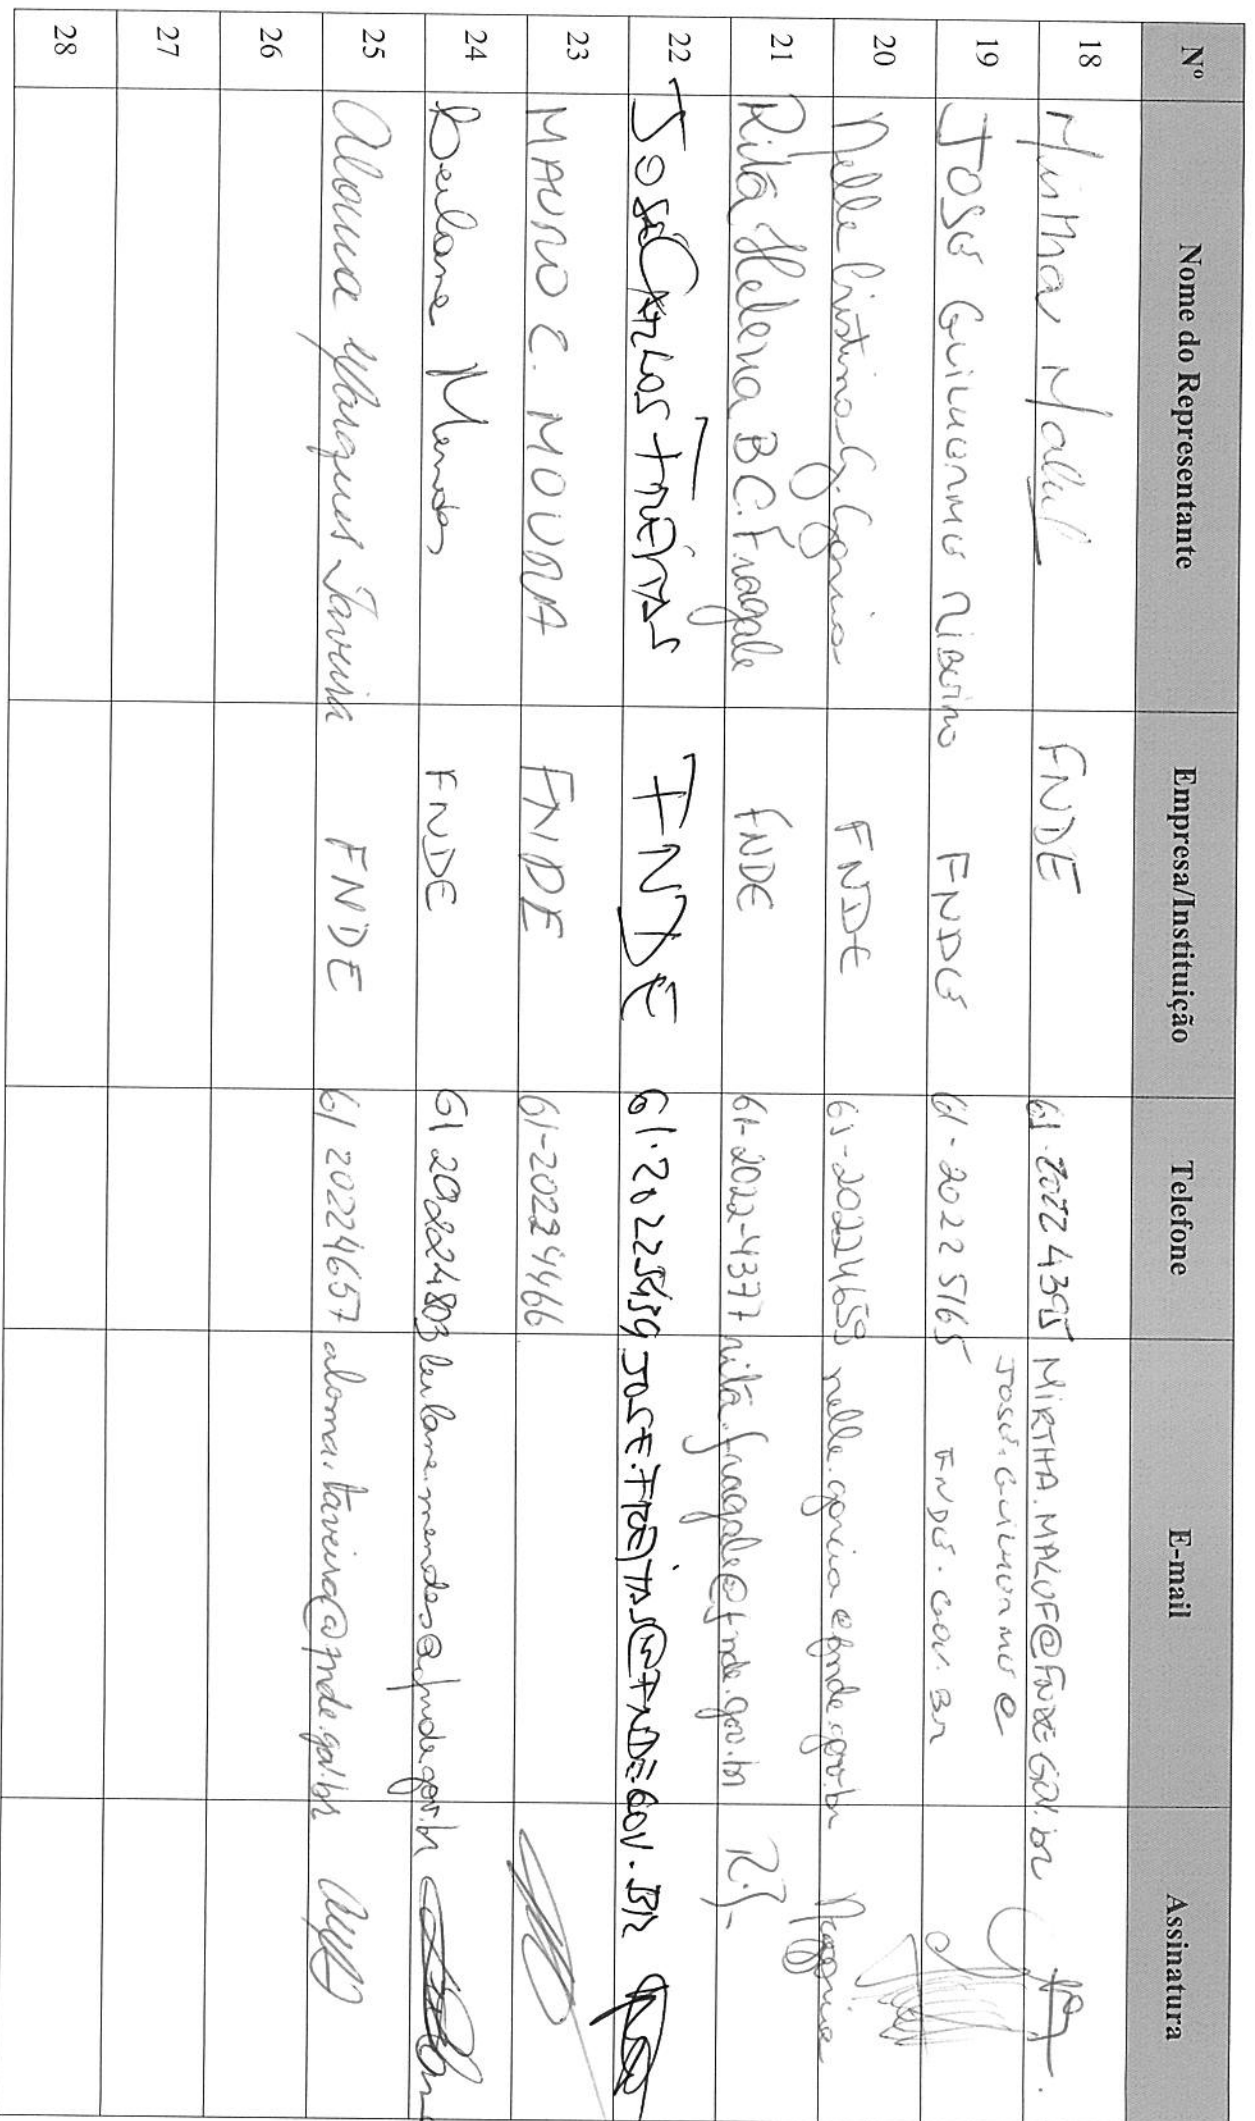 Nº Nome do Representante Empresa/Instituição Telefone E-mail Assinatura
18 Mirtha Maluf FNDE 61-2022 4395 MIRTHA.MALUF@FNDE.GOV.br
19 JOSÉ GUILHERME RIBEIRO FNDE 61-2022 5165 JOSE.GUILHERME@
FNDE.GOV.BR
20 Nelle Cristina G. Garcia FNDE 61-20224659 nelle.garcia@fnde.gov.br
21 Rita Helena B C. Fragale FNDE 61-2022-4377 rita.fragale@fnde.gov.br
22 JOSÉ CARLOS FREITAS FNDE 61.20225439 JOSE.FREITAS@FNDE.GOV.BR
23 MAURO C. MOURA FNDE 61-20224466
24 Leilane Mendes FNDE 61 20224803 leilane.mendes@fnde.gov.br
25 Aloma Marques Taveira FNDE 61 20224657 aloma.taveira@fnde.gov.br
26
27
28